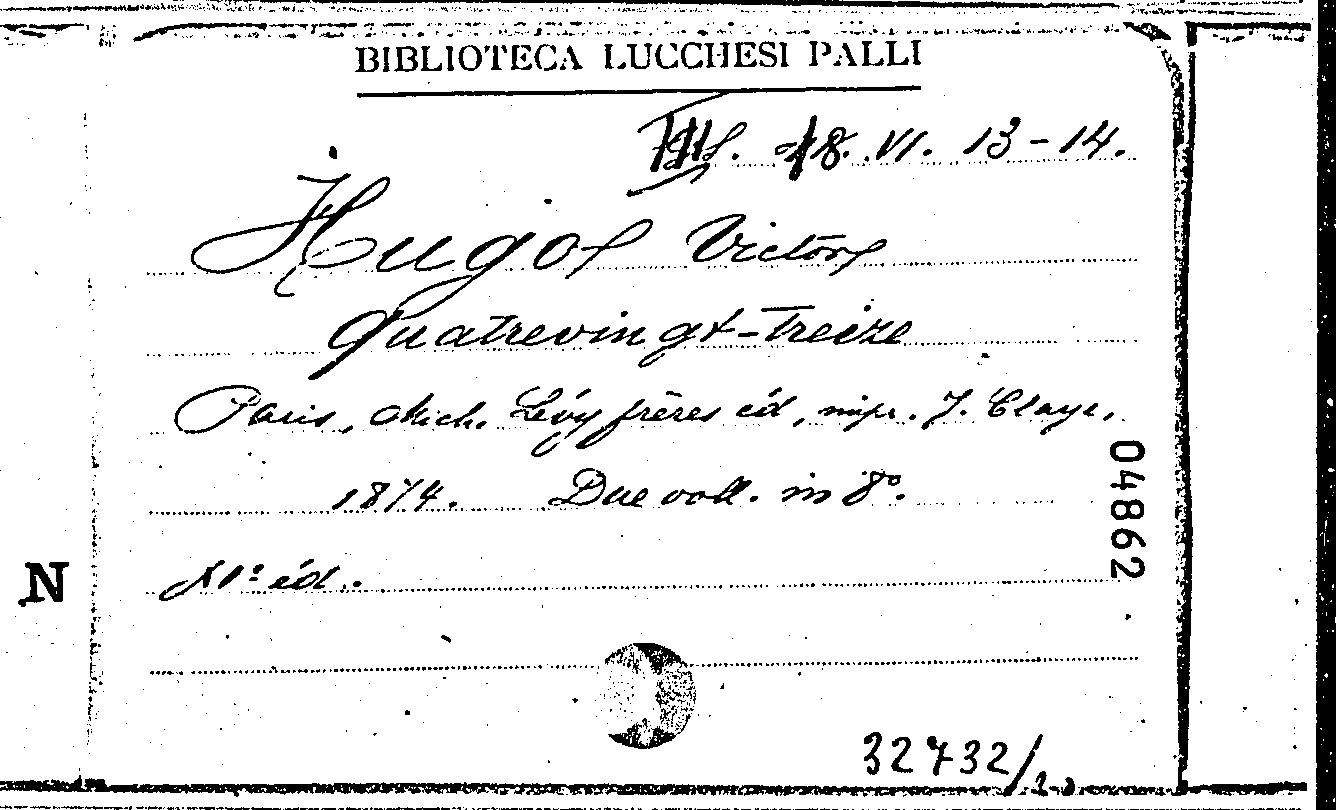 BIBLIOTECA LUCCHESI PALLI
18. VI. 13-14.
Hugo Victor
Quatrevingt-Treize
Paris, Mich. Lévy frères éd, impr. J. Claye,
1874. Due voll. in 8º.
éd.
04862
N
32732/